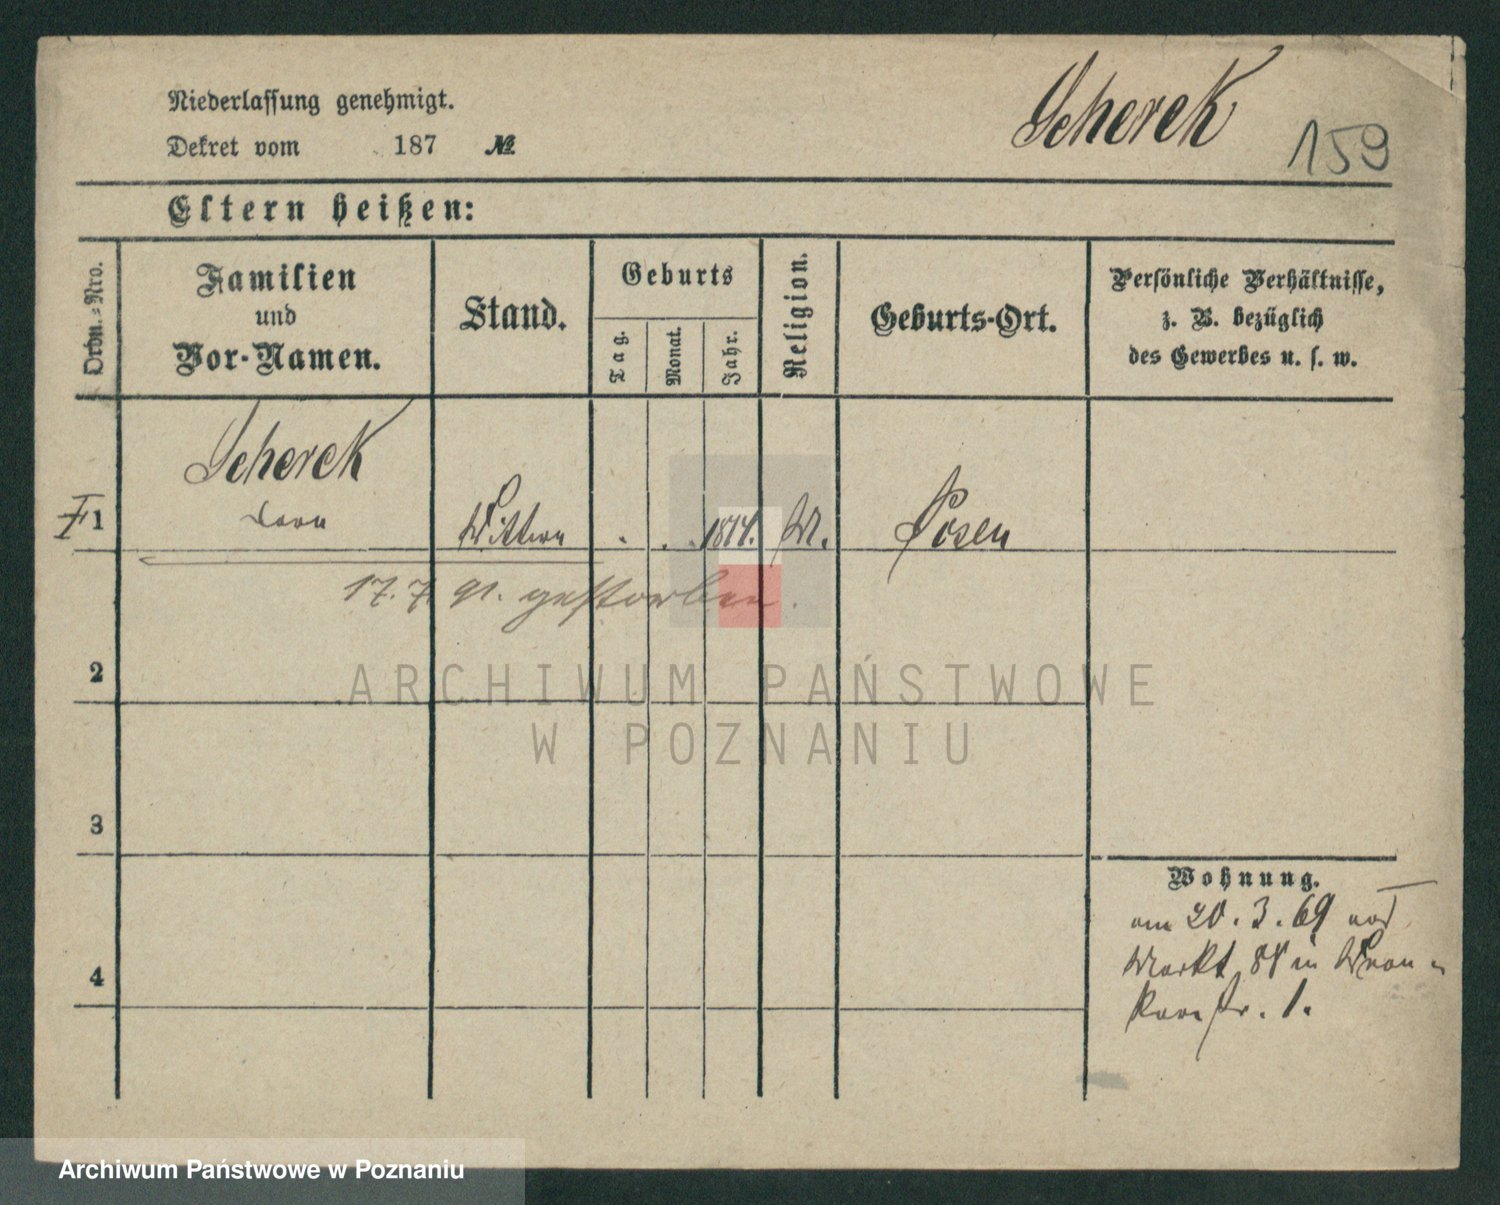 Scherek
159
Niederlassung genehmigt.
Dekret vom 187 №
Eltern heißen:
Ordn.-Nro.
Familien
und
Vor-Namen.
Stand.
Geburts
Tag.
Monat.
Jahr.
Religion.
Geburts-Ort.
Persönliche Verhältnisse,
z. B. bezüglich
des Gewerbes u. s. w.
Scherek
1
Wittwe
1814.
M.
Posen
17. 7. 91. gestorben.
2
3
4
Wohnung.
am 20. 3. 69 von
Markt 88 in Wron-
kerstr. 1.
ARCHIWUM PAŃSTWOWE
W POZNANIU
Archiwum Państwowe w Poznaniu